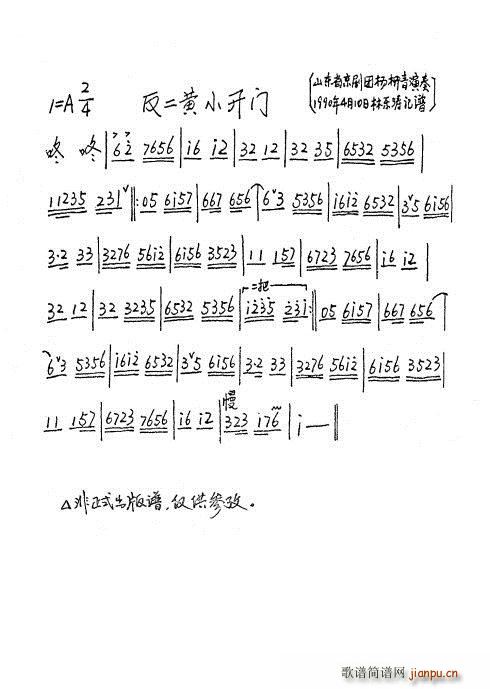 1=A 2/4 反二黄小开门 (山东省京剧团杨柳青演奏
1990年4月10日林东塔记谱)
咚 咚|6 2̇ 7656|i6 i2|32 12|32 35|6532 5356|
11235 231ˇ‖:05 6i57|667 656|6ˇ3 5356|i6i2 6532|3ˇ5 6i56|
3·2 33|3276 56i2|6i56 3523|11 157|6723 7656|i6 i2|
32 12|32 3235|6532 5356|二把 i235 231:‖05 6i57|667 656|
6ˇ3 5356|i6i2 6532|3ˇ5 6i56|3·2 33|3276 56i2|6i56 3523|
11 157|6723 7656|i6 i2|慢 323 i76|i —‖
△非正式出版谱,仅供参改。
歌谱简谱网
jianpu.cn